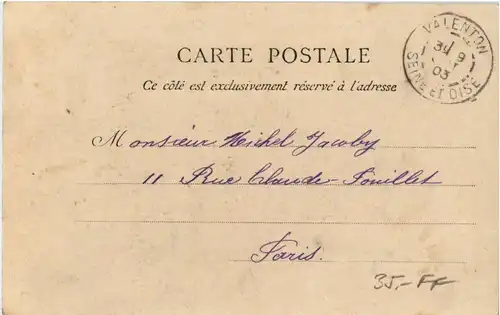 CARTE POSTALE
Ce côté est exclusivement réservé à l'adresse
VALENTON
9
03
SEINE ET OISE
Monsieur Michel Jacoby
11 Rue Claude-Pouillet
Paris.
35.- FF